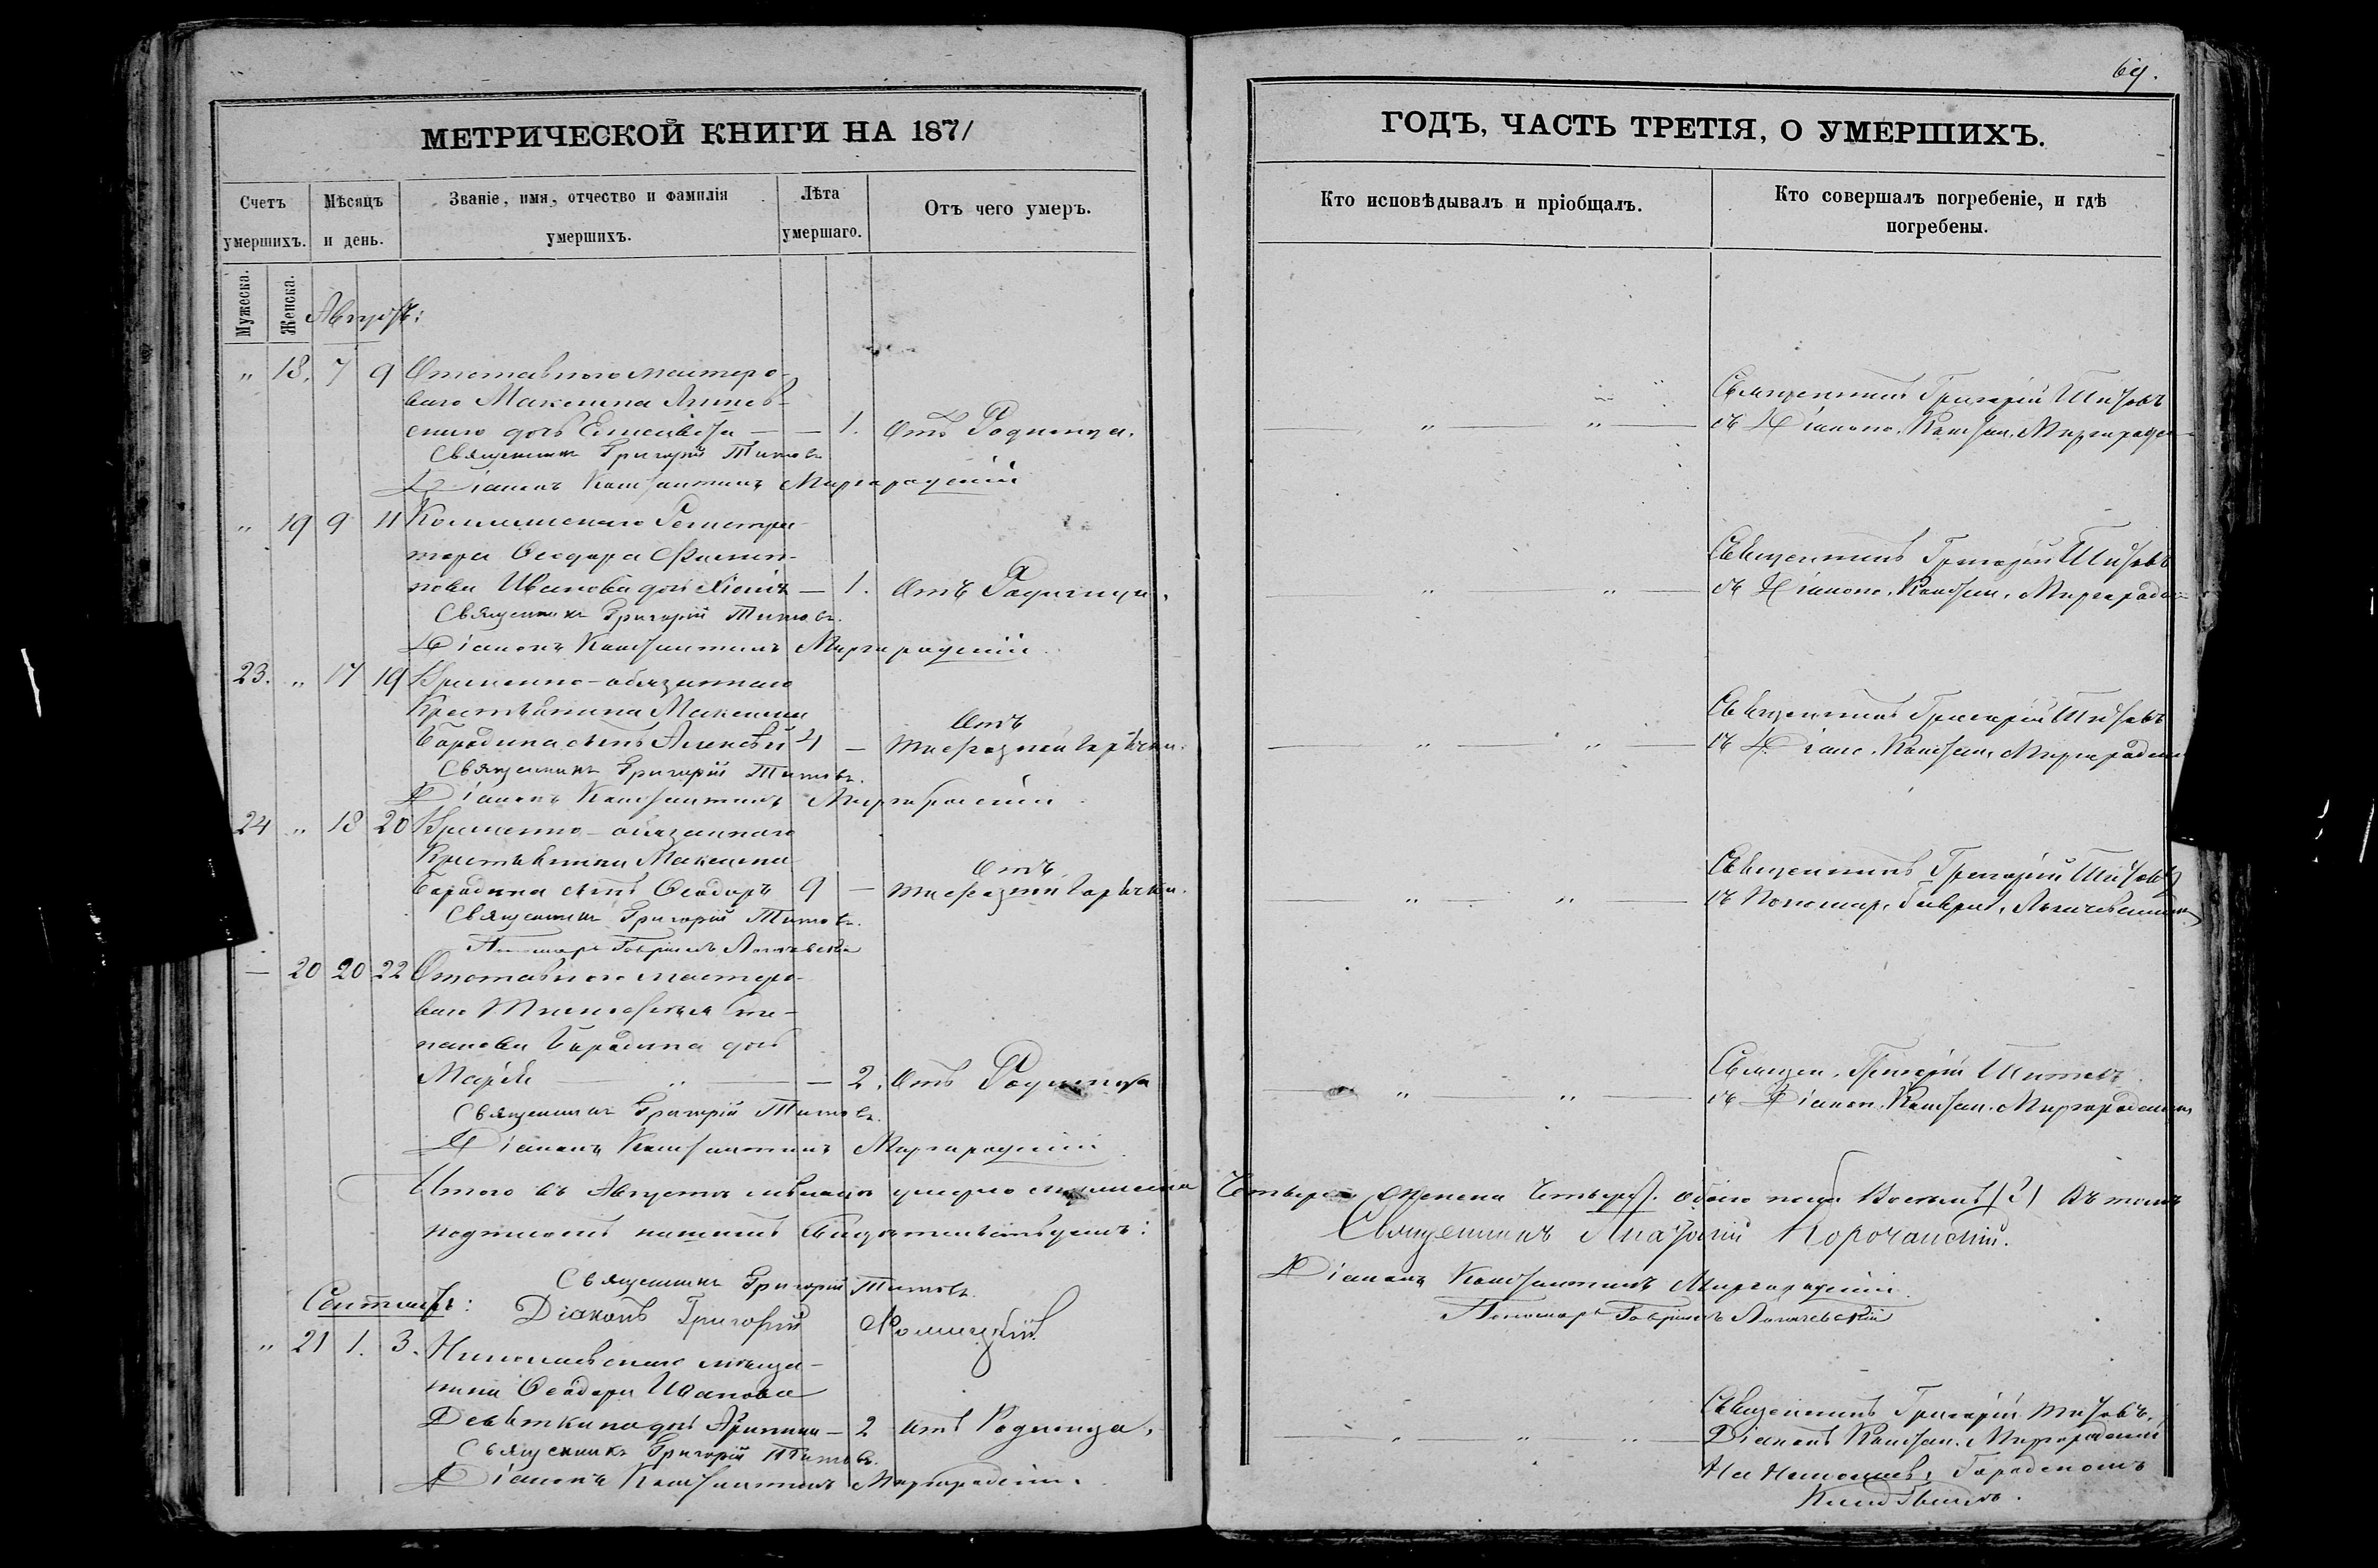 69.
МЕТРИЧЕСКОЙ КНИГИ НА 1871
ГОДЪ, ЧАСТЬ ТРЕТІЯ, О УМЕРШИХЪ.
Счетъ умершихъ.
Мѣсяцъ и день.
Званіе, имя, отчество и фамилія умершихъ.
Лѣта умершаго.
Отъ чего умеръ.
Кто исповѣдывалъ и пріобщалъ.
Кто совершалъ погребеніе, и гдѣ погребены.
Мужеска.
Женска.
Августъ:
" 18. 7 9 Отставнаго мастеро-
ваго Максима
дочь Елисавета — — 1. Отъ Родимца.
Священникъ Григорій Титовъ
Діаконъ Константинъ Миргородскій
Священникъ Григорій Титовъ
съ Діаконо. Констан. Миргородс
" 19 9 11 Коллежскаго Регистра-
тора Ѳеодора Филип-
пова Иванова дочь — 1. Отъ Родимца.
Священникъ Григорій Титовъ.
Діаконъ Константинъ Миргородскій
Священникъ Григорій Титовъ
съ Діаконо. Констан. Миргородс
23. " 17 19 Временно-обязаннаго
Крестьянина Максима
Бородина сынъ Алексѣй 4 — Отъ
горячки.
Священникъ Григорій Титовъ.
Діаконъ Константинъ Миргородскій
Священникъ Григорій Титовъ
съ Діако. Констан. Миргородски
24 " 18 20 Временно-обязаннаго
Крестьянина Максима
Бородина сынъ Ѳеодоръ 9 — Отъ
горячки.
Священникъ Григорій Титовъ.
Пономарь Гавріилъ
Священникъ Григорій Титовъ
съ Пономар. Гаврил.
— 20 20 22 Отставнаго мастеро-
ваго Тимоѳея Сте-
панова Бородина дочь
Марія — " — — 2. Отъ Родимца
Священникъ Григорій Титовъ.
Діаконъ Константинъ Миргородскій
Священ. Григорій Титовъ
съ Діакон. Констан. Миргородским
Итого въ Августѣ мѣсяцѣ умерло мужеска Четыре Женска Четыре. Обоего пола Восемь (8) Въ томъ
подписомъ нашимъ свидѣтельствуемъ:
Священникъ Корочанскій.
Священникъ Григорій Титовъ.
Діаконъ Константинъ Миргородскій.
Діаконъ Григорій
Пономарь Гавріилъ
Сентябрь:
" 21 1. 3. Николаевскаго мѣща-
нина Ѳеодора Иванова
Девяткина дочь — 2 отъ Родимца.
Священникъ Григорій Титовъ.
Діаконъ Константинъ Миргородскій.
Священникъ Григорій Титовъ.
Діаконъ Констан. Миргородскій
На Николаев. Городскомъ
Кладбищѣ.